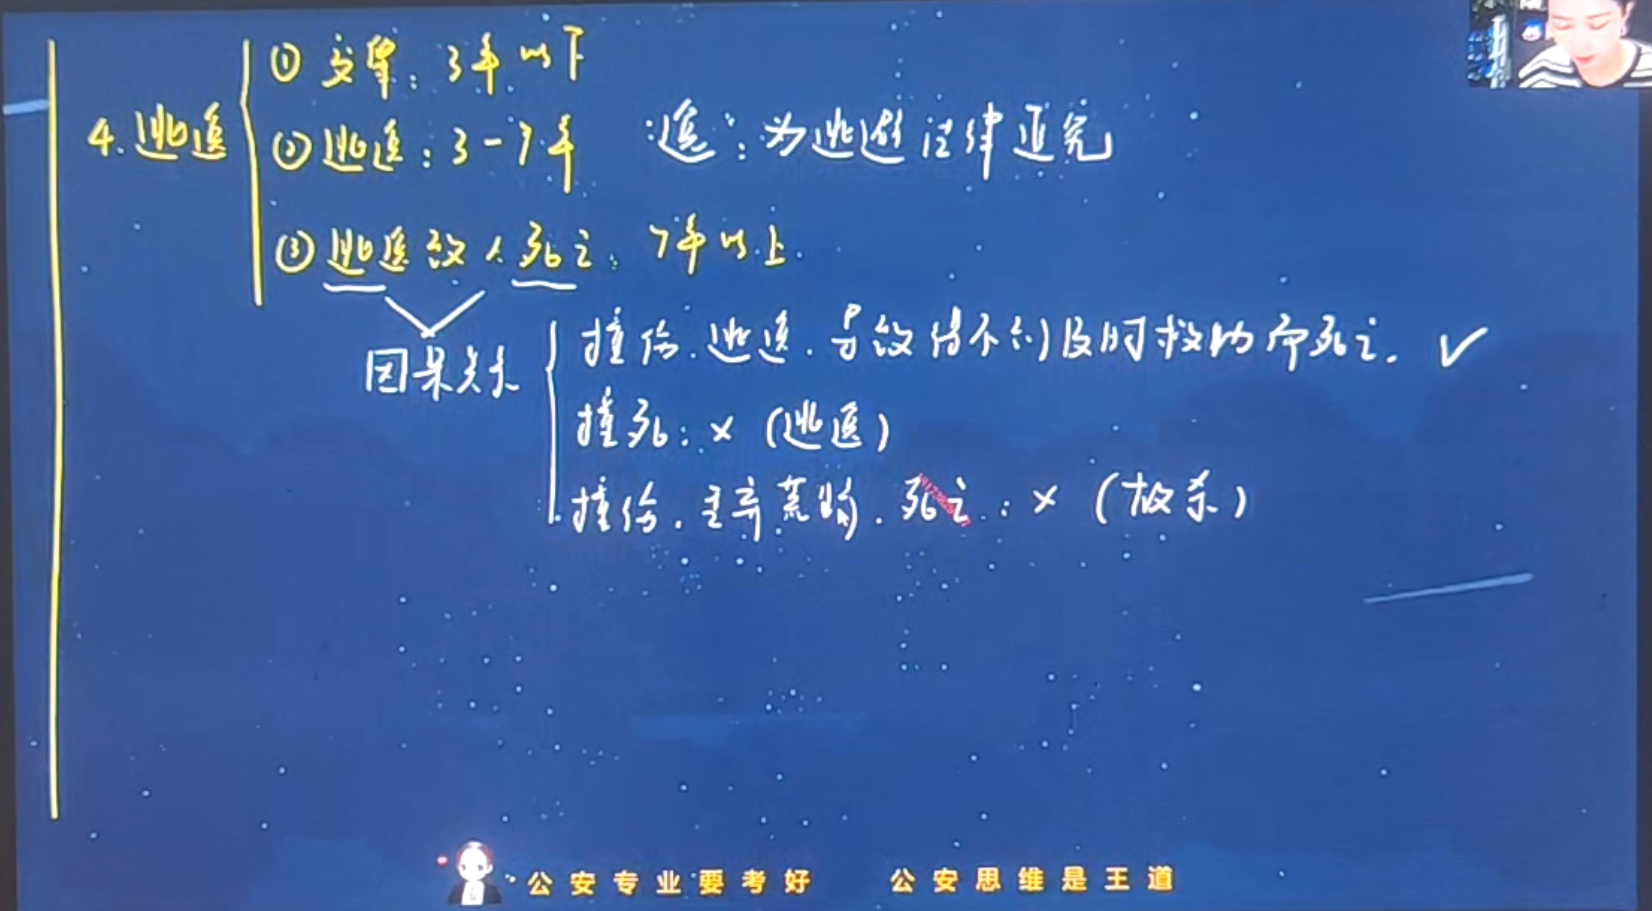 4.逃逸
① 交肇：3年以下
② 逃逸：3-7年 "逸"：为逃避法律追究
③ 逃逸致人死亡：7年以上.
因果关系
撞伤.逃逸.导致得不到及时救助而死亡. ✓
撞死：×（逃逸）
撞伤.至弃荒野.死亡：×（故杀）
公安专业要考好 公安思维是王道